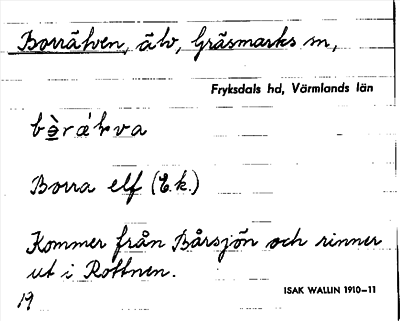 Borrälven, älv, Gräsmarks sn,
Fryksdals hd, Värmlands län
Borra elf (E.k.)
Kommer från Bårsjön och rinner
ut i Rottnen.
19
ISAK WALLIN 1910–11